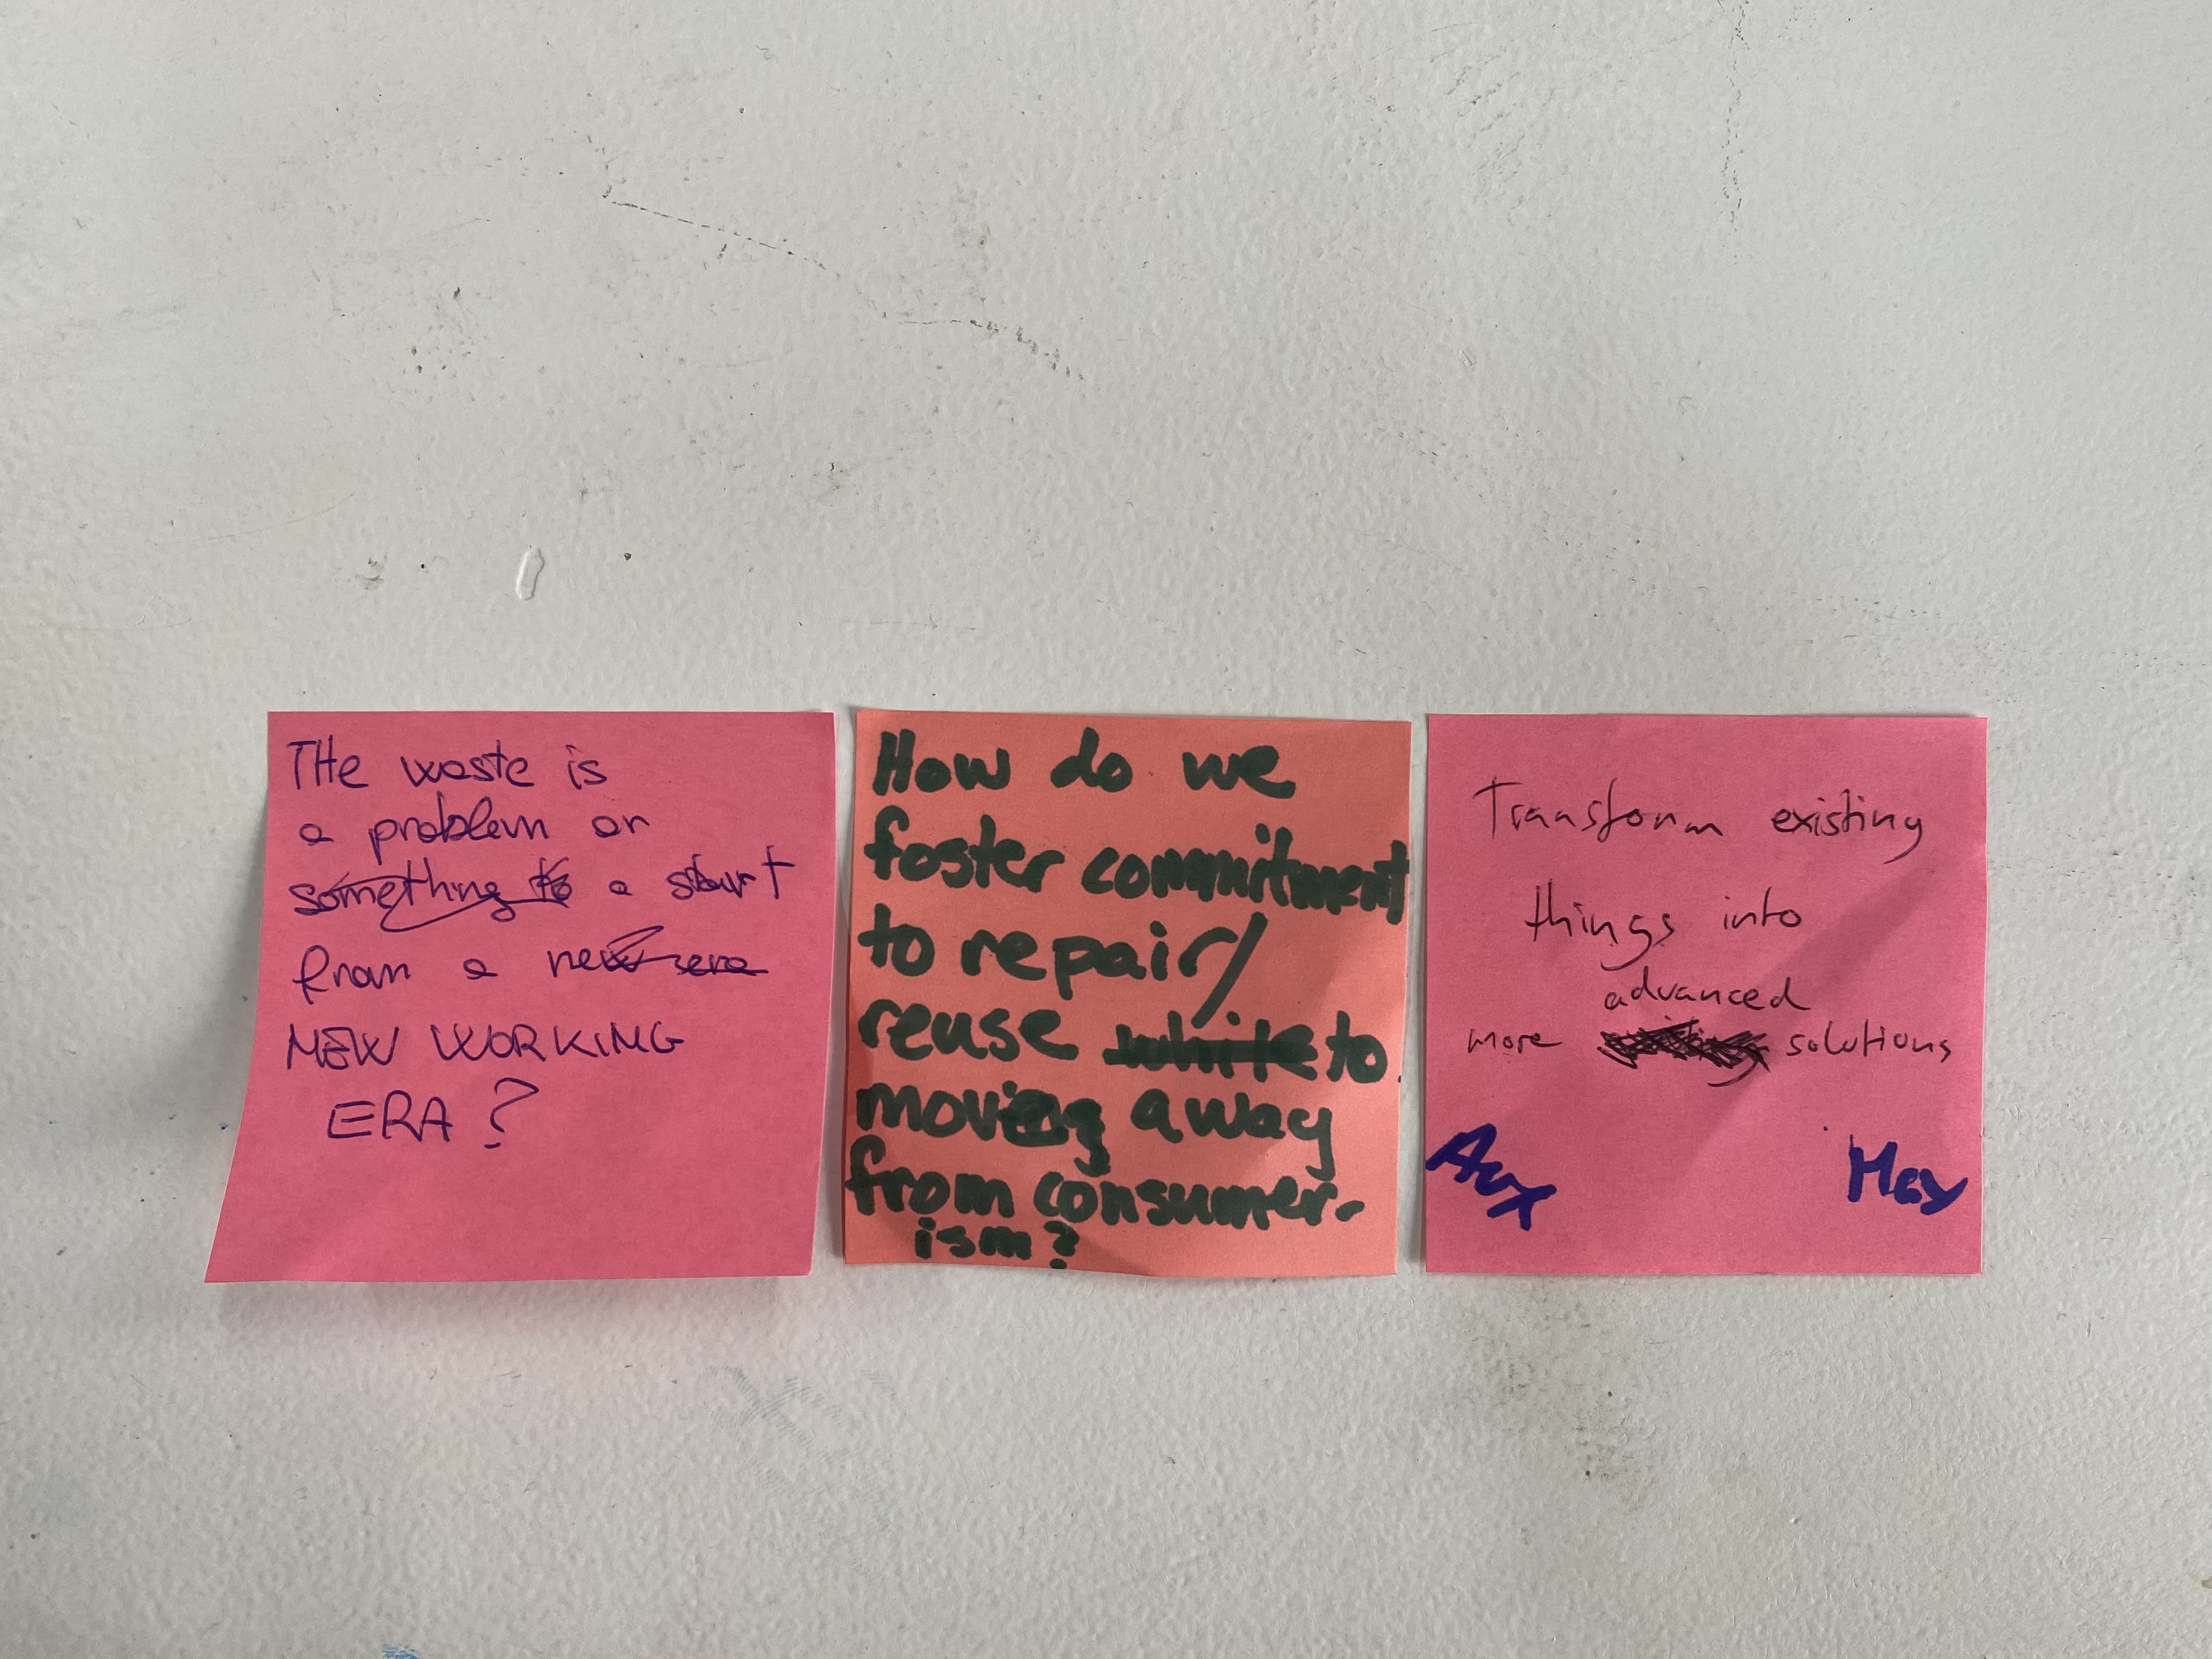 THe waste is
a problem or
something to a start
from a new era
NEW WORKING
ERA?
How do we
foster commitment
to repair/
reuse while to
moving away
from consumer-
ism?
Transform existing
things into
advanced
more solutions
May